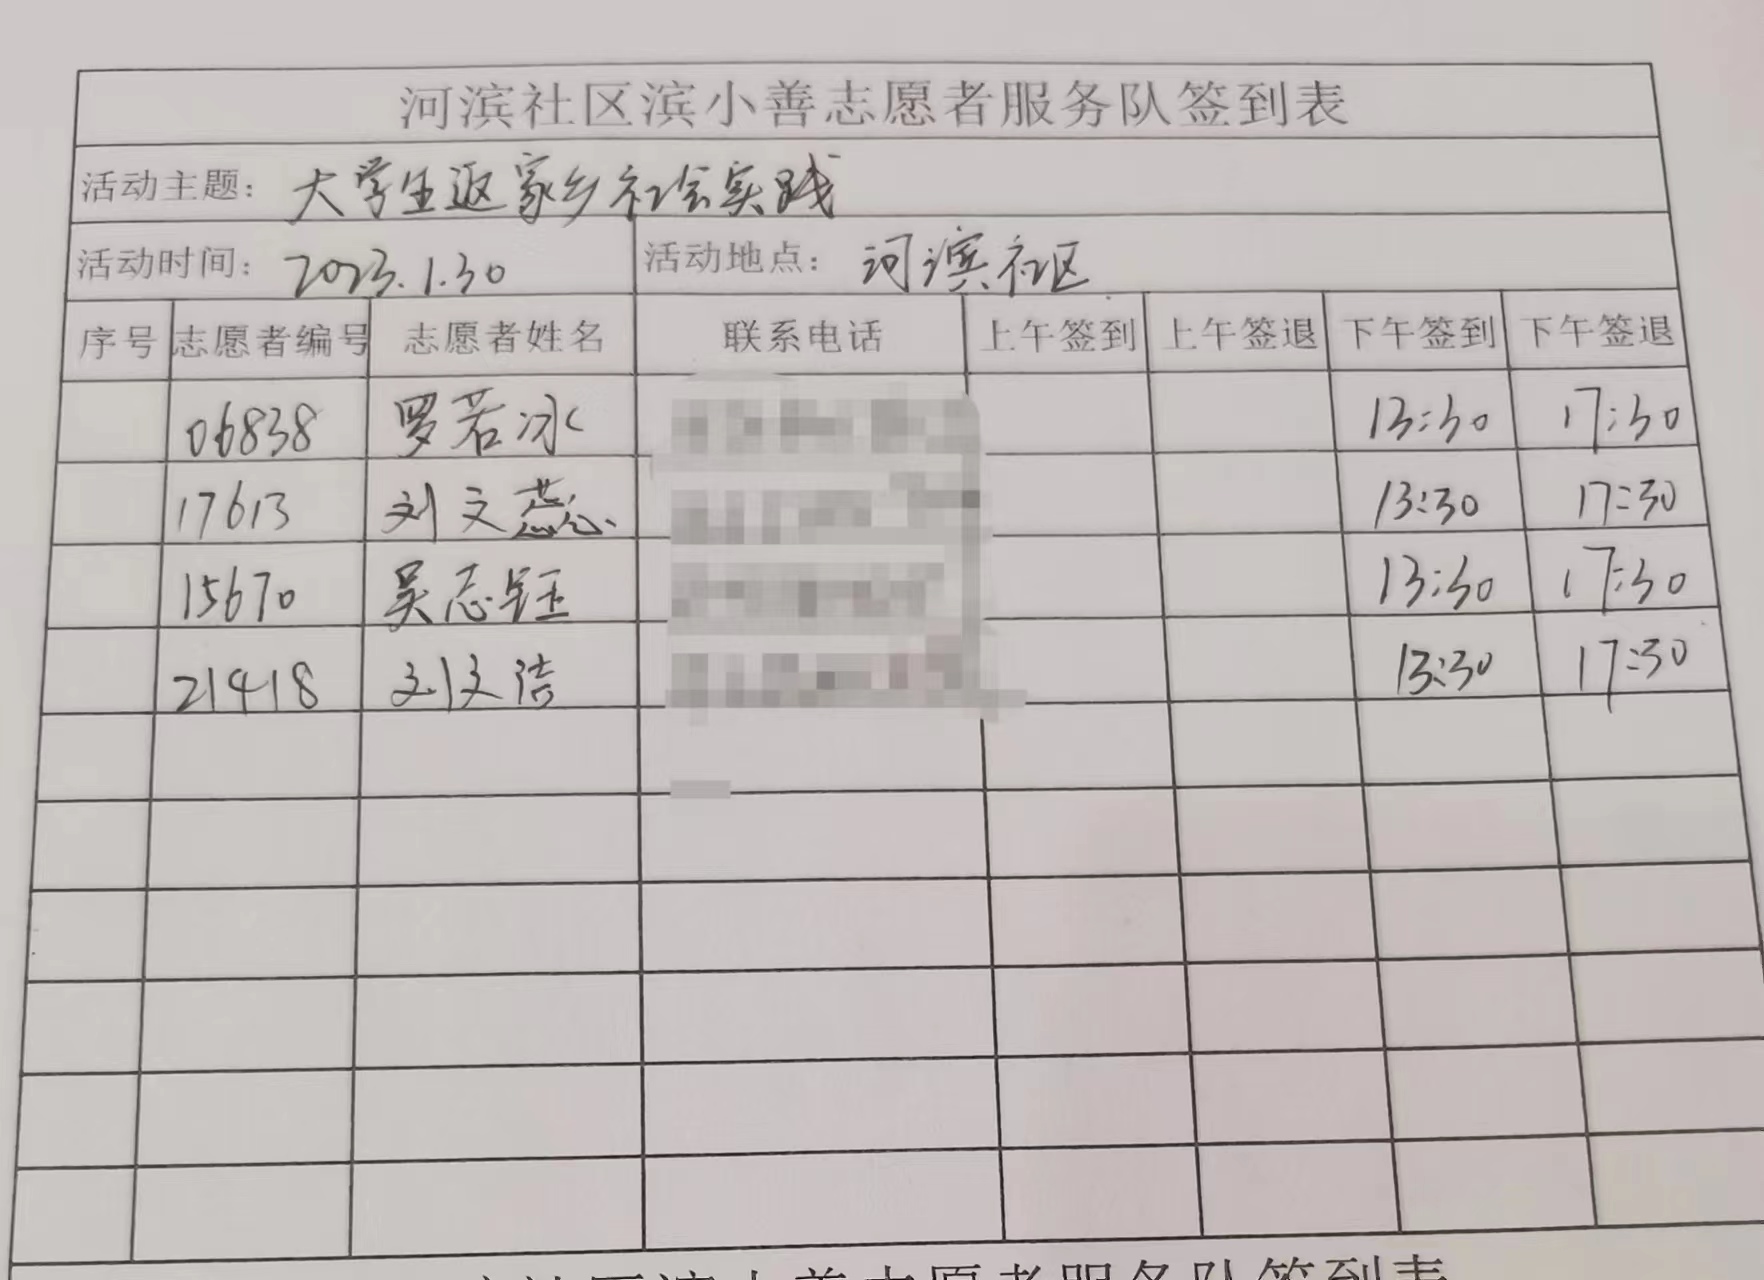 河滨社区滨小善志愿者服务队签到表
活动主题：大学生返家乡社会实践
活动时间：2023.1.30 活动地点：河滨社区
序号 志愿者编号 志愿者姓名 联系电话 上午签到 上午签退 下午签到 下午签退
06838 罗若冰 13:30 17:30
17613 刘文蕊 13:30 17:30
15670 吴志钰 13:30 17:30
21418 刘文洁 13:30 17:30
社区滨小善志愿者服务队签到表